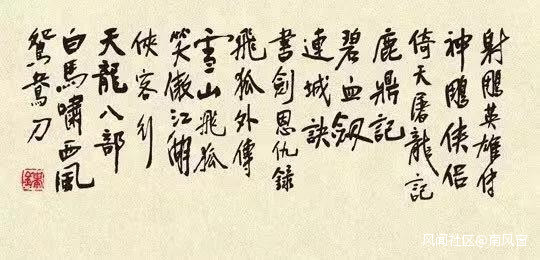 射鵰英雄传
神鵰侠侣
倚天屠龍記
鹿鼎記
碧血劔
連城訣
書劍恩仇錄
飛狐外傳
雪山飛狐
笑傲江湖
俠客行
天龍八部
白馬嘯西風
鴛鴦刀
风闻社区@南风窗